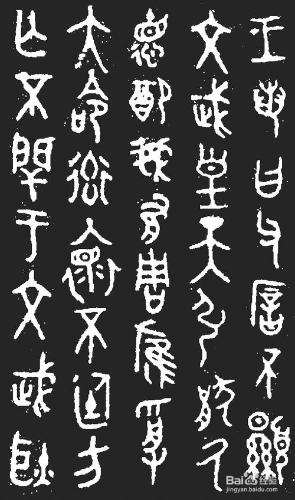 王若曰父㾓不顯
文武皇天引猒氒
德配我有周膺受
大命率懷不廷方
亡不閈于文武耿
Baidu经验
jingyan.baidu.com